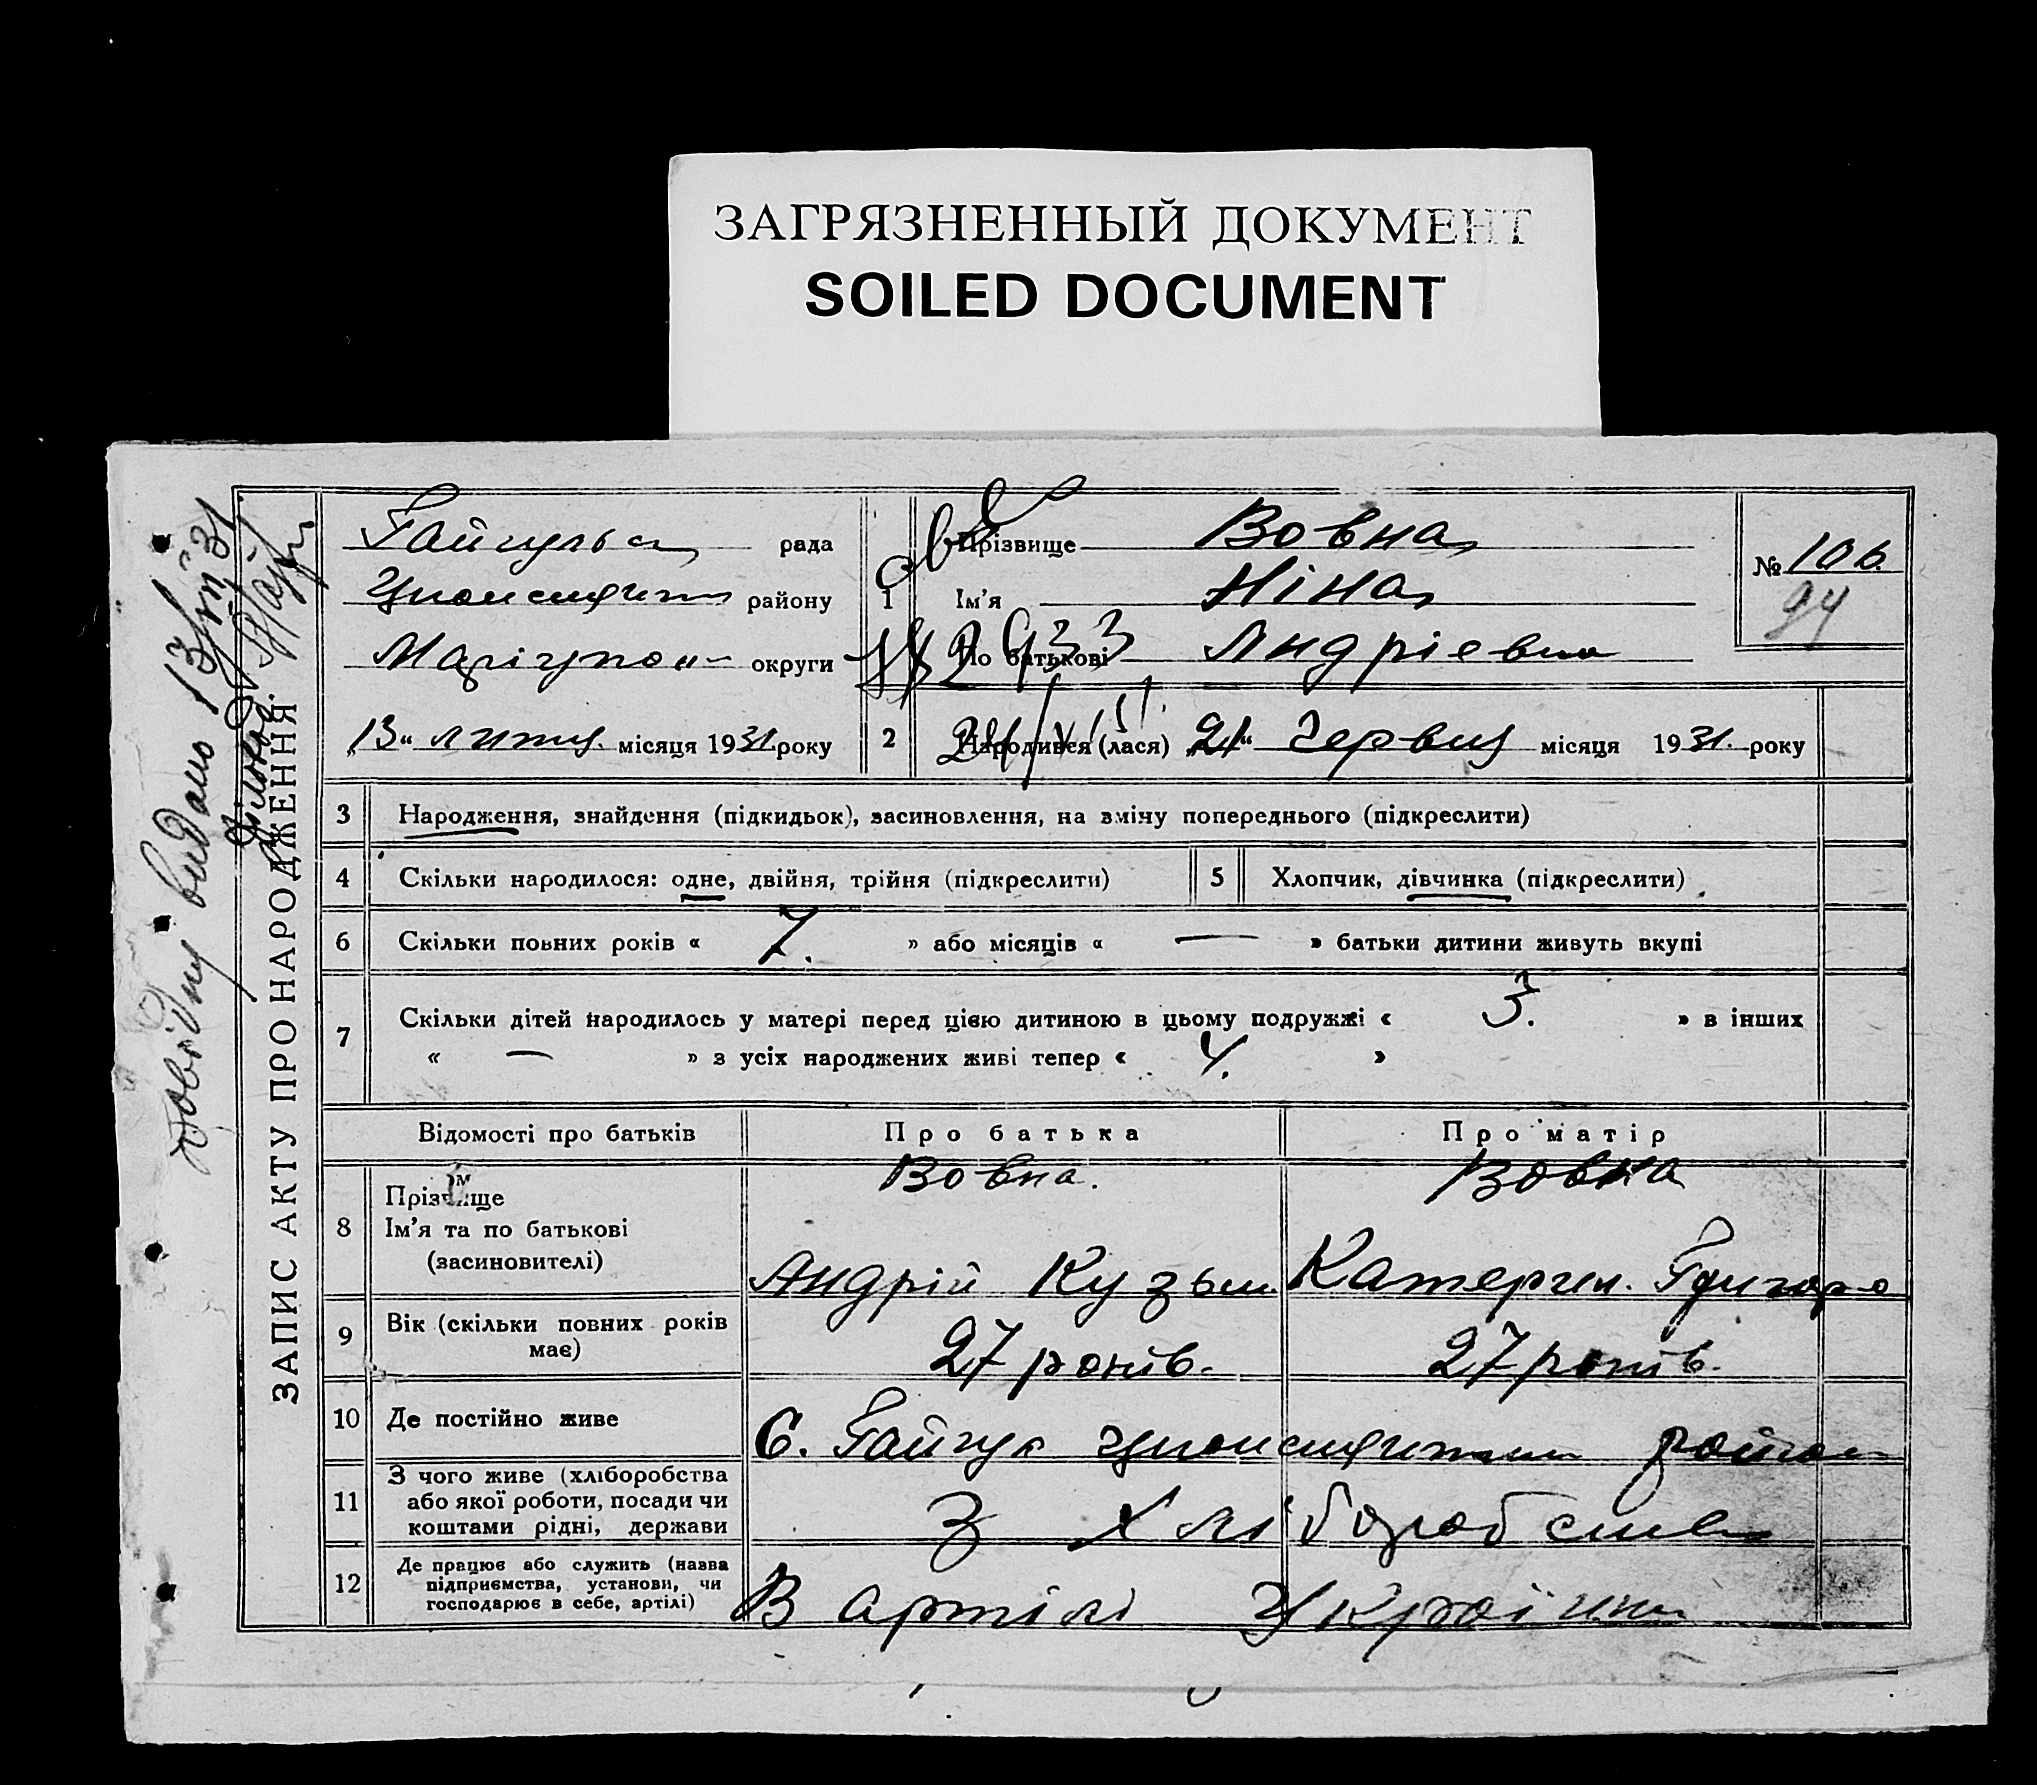 ЗАГРЯЗНЕННЫЙ ДОКУМЕНТ
SOILED DOCUMENT
ЗАПИС АКТУ ПРО НАРОДЖЕННЯ.
Довідку видано 13/VII 31
рада
району
округи
„13“ липня місяця 1931 року
1
Прізвище Вовна
Ім'я Ніна
По батькові Андрієвна
№ 106.
94
2
Народився (лася) „21“ Червня місяця 1931. року
3 Народження, знайдення (підкидьок), засиновлення, на зміну попереднього (підкреслити)
4 Скільки народилося: одне, двійня, трійня (підкреслити)
5 Хлопчик, дівчинка (підкреслити)
6 Скільки повних років « 7. » або місяців « — » батьки дитини живуть вкупі
7 Скільки дітей народилось у матері перед цією дитиною в цьому подружжі « 3. » в інших
« — » з усіх народжених живі тепер « 4. »
Відомості про батьків Про батька Про матір
8 Прізвище Вовна. Вовна
Ім'я та по батькові
(засиновителі) Андрій Кузьм. Катерин. Григоро
9 Вік (скільки повних років
має) 27 років. 27 років.
10 Де постійно живе С. Гайчул район
11 З чого живе (хліборобства
або якої роботи, посади чи
коштами рідні, держави З хліборобства
12 Де працює або служить (назва
підприємства, установи, чи
господарює в себе, артілі) В артілі Україна